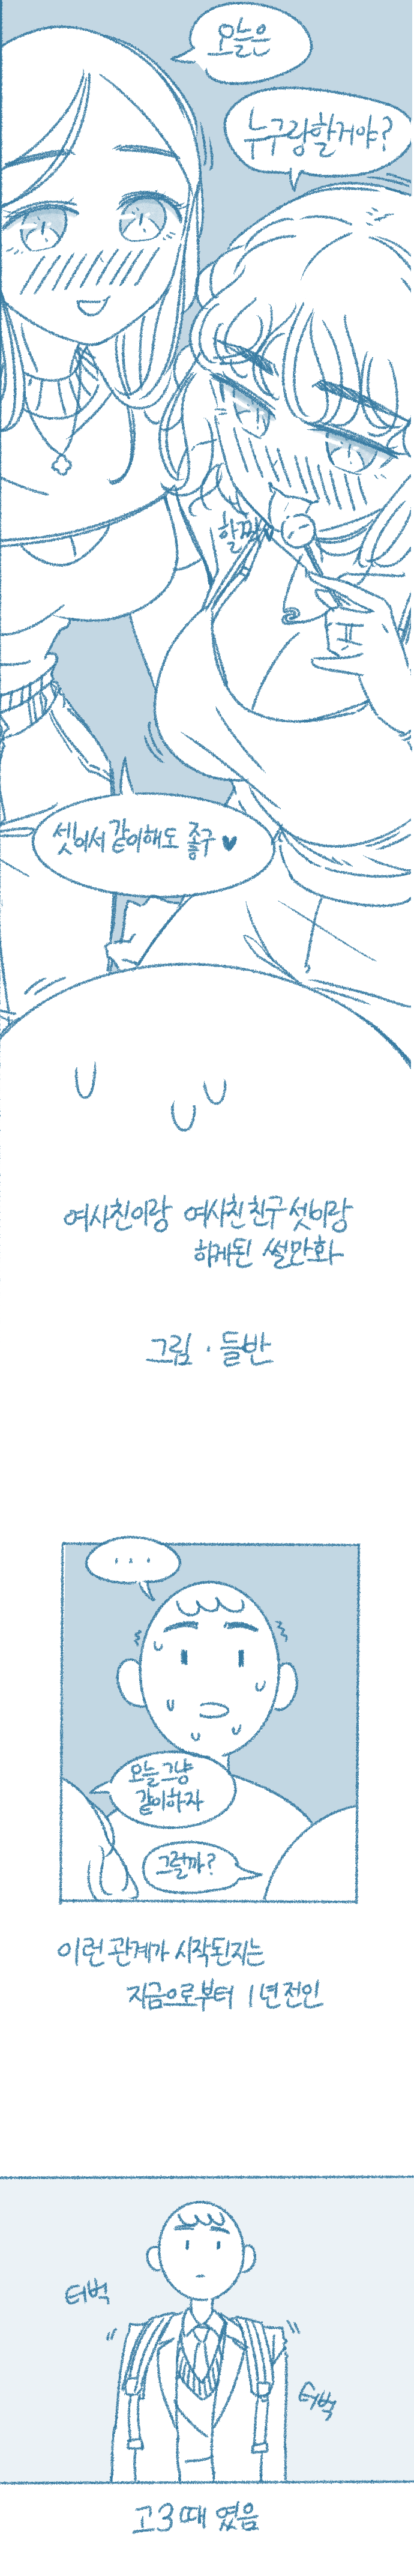 오늘은
누구랑할거야?
할짝
셋이서 같이해도 좋구 ♥
여사친이랑 여사친 친구 셋이랑
하게된 썰만화
그림 · 들반
...
오늘 그냥
같이하자
그럴까?
이런 관계가 시작된지는
지금으로부터 1년 전인
터벅
터벅
고3때 였음